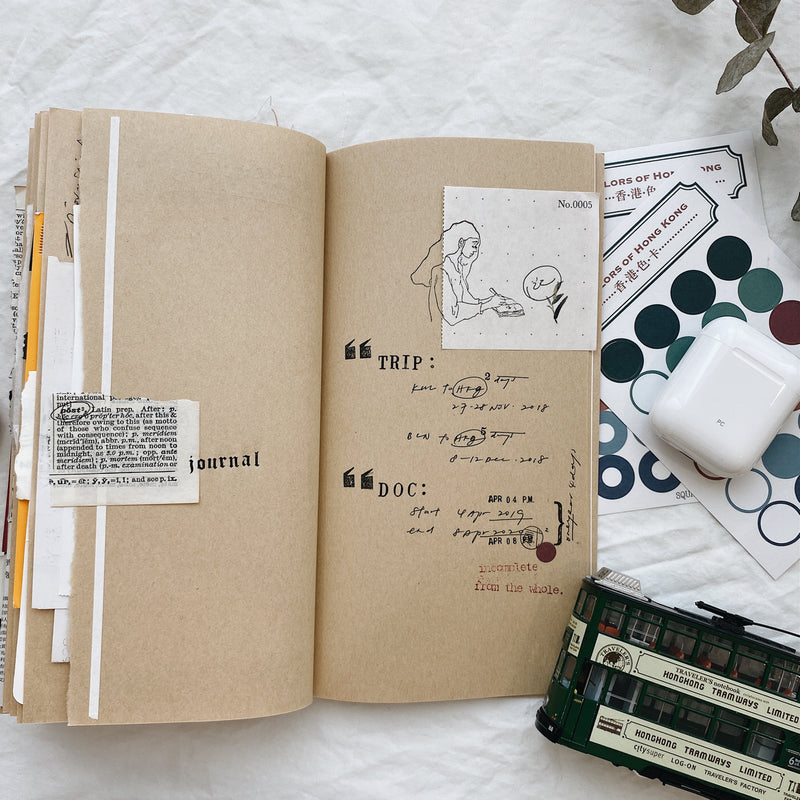 international
post², Latin prep. After; p.
hoc ergo propter hoc, after this &
therefore owing to this (as motto
of those who confuse sequence
with consequence); p. meridiem
(merid'iĕm), abbr. p.m., after noon
(appended to times from noon to
midnight, as 5.0 p.m.; opp. ante
meridiem); p. mortem (mōrt'ĕm),
after death (p.-m. examination or
and see p. ix.
journal
No.0005
TRIP:
KUL to HKG 2 days
27-28 NOV. 2018
to HKG 5 days
8-12 DEC. 2018
DOC:
APR 04 P.M.
Start 4 Apr 2019
end 8 Apr 2020
APR 08 P.M.
incomplete
from the whole.
LORS OF HONG KONG
香·港·色·
COLORS OF HONG KONG
香·港·色·卡
SQUA
PC
TRAVELER'S
TRAVELER'S notebook
HONGKONG TRAMWAYS LIMITED
HONGKONG TRAMWAYS LIMITED
citysuper LOG-ON TRAVELER'S FACTORY